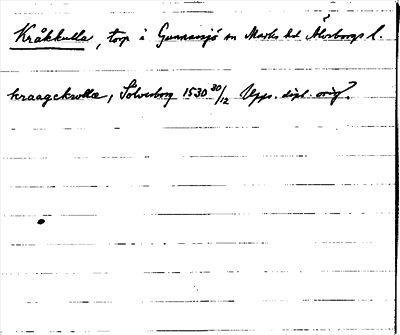 Kråkkulla, torp i Gunnarsjö sn Marks hd Älvsborgs l.
kraagekulla, Sölvesborg 1530 30/12 Upps. dipl. orig.